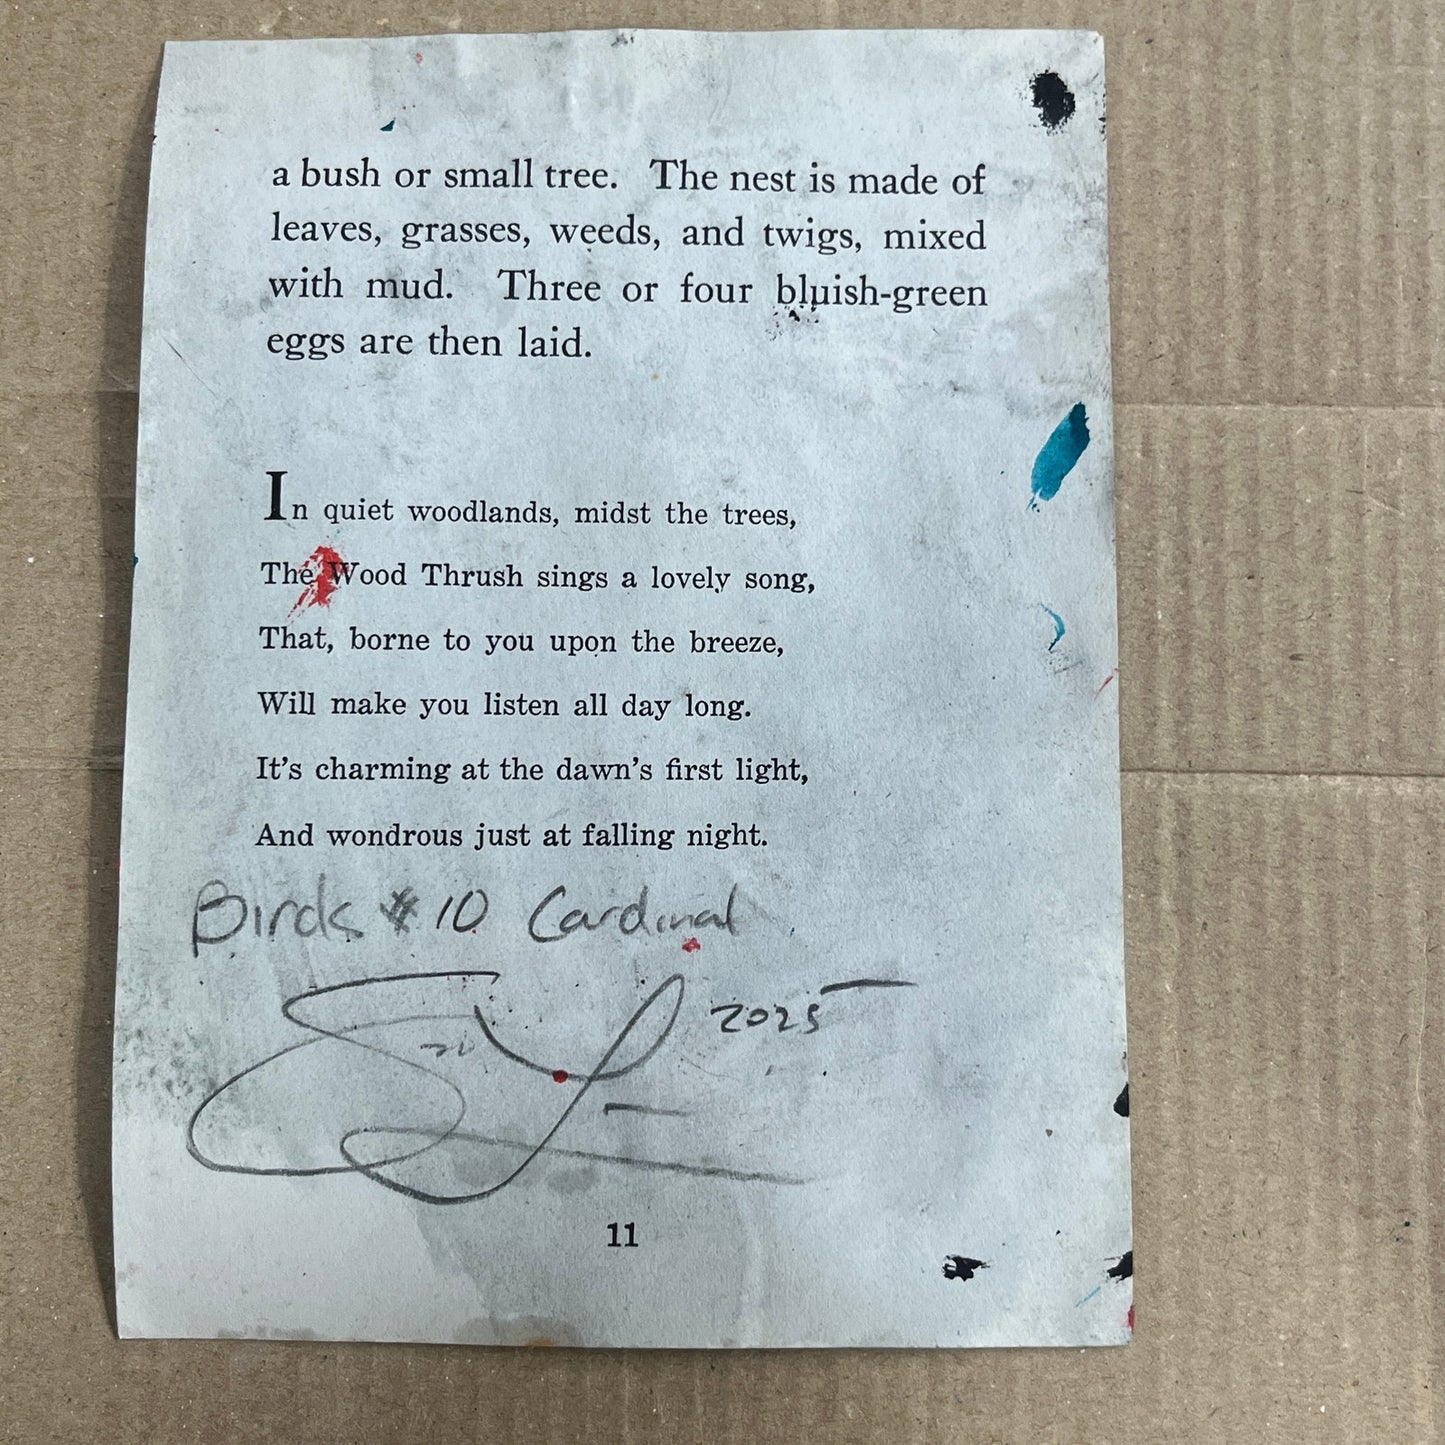 a bush or small tree. The nest is made of
leaves, grasses, weeds, and twigs, mixed
with mud. Three or four bluish-green
eggs are then laid.
In quiet woodlands, midst the trees,
The Wood Thrush sings a lovely song,
That, borne to you upon the breeze,
Will make you listen all day long.
It's charming at the dawn's first light,
And wondrous just at falling night.
Birds #10 Cardinal
2025
11